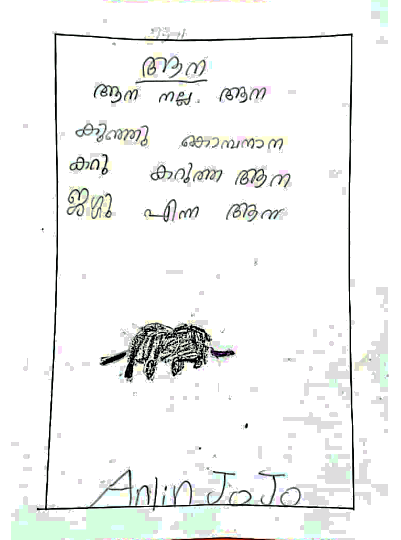 ആന
ആന നല്ല ആന
കുഞ്ഞു കൊമ്പനാന
കറു കറുത്ത ആന
ജഗ്ഗു എന്ന ആന
Anlin JoJo